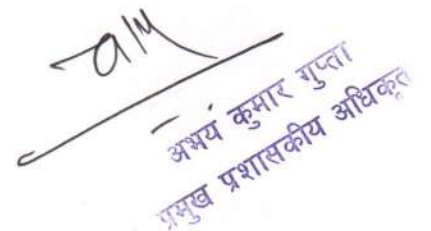 अभय कुमार गुप्ता
प्रमुख प्रशासकीय अधिकृत